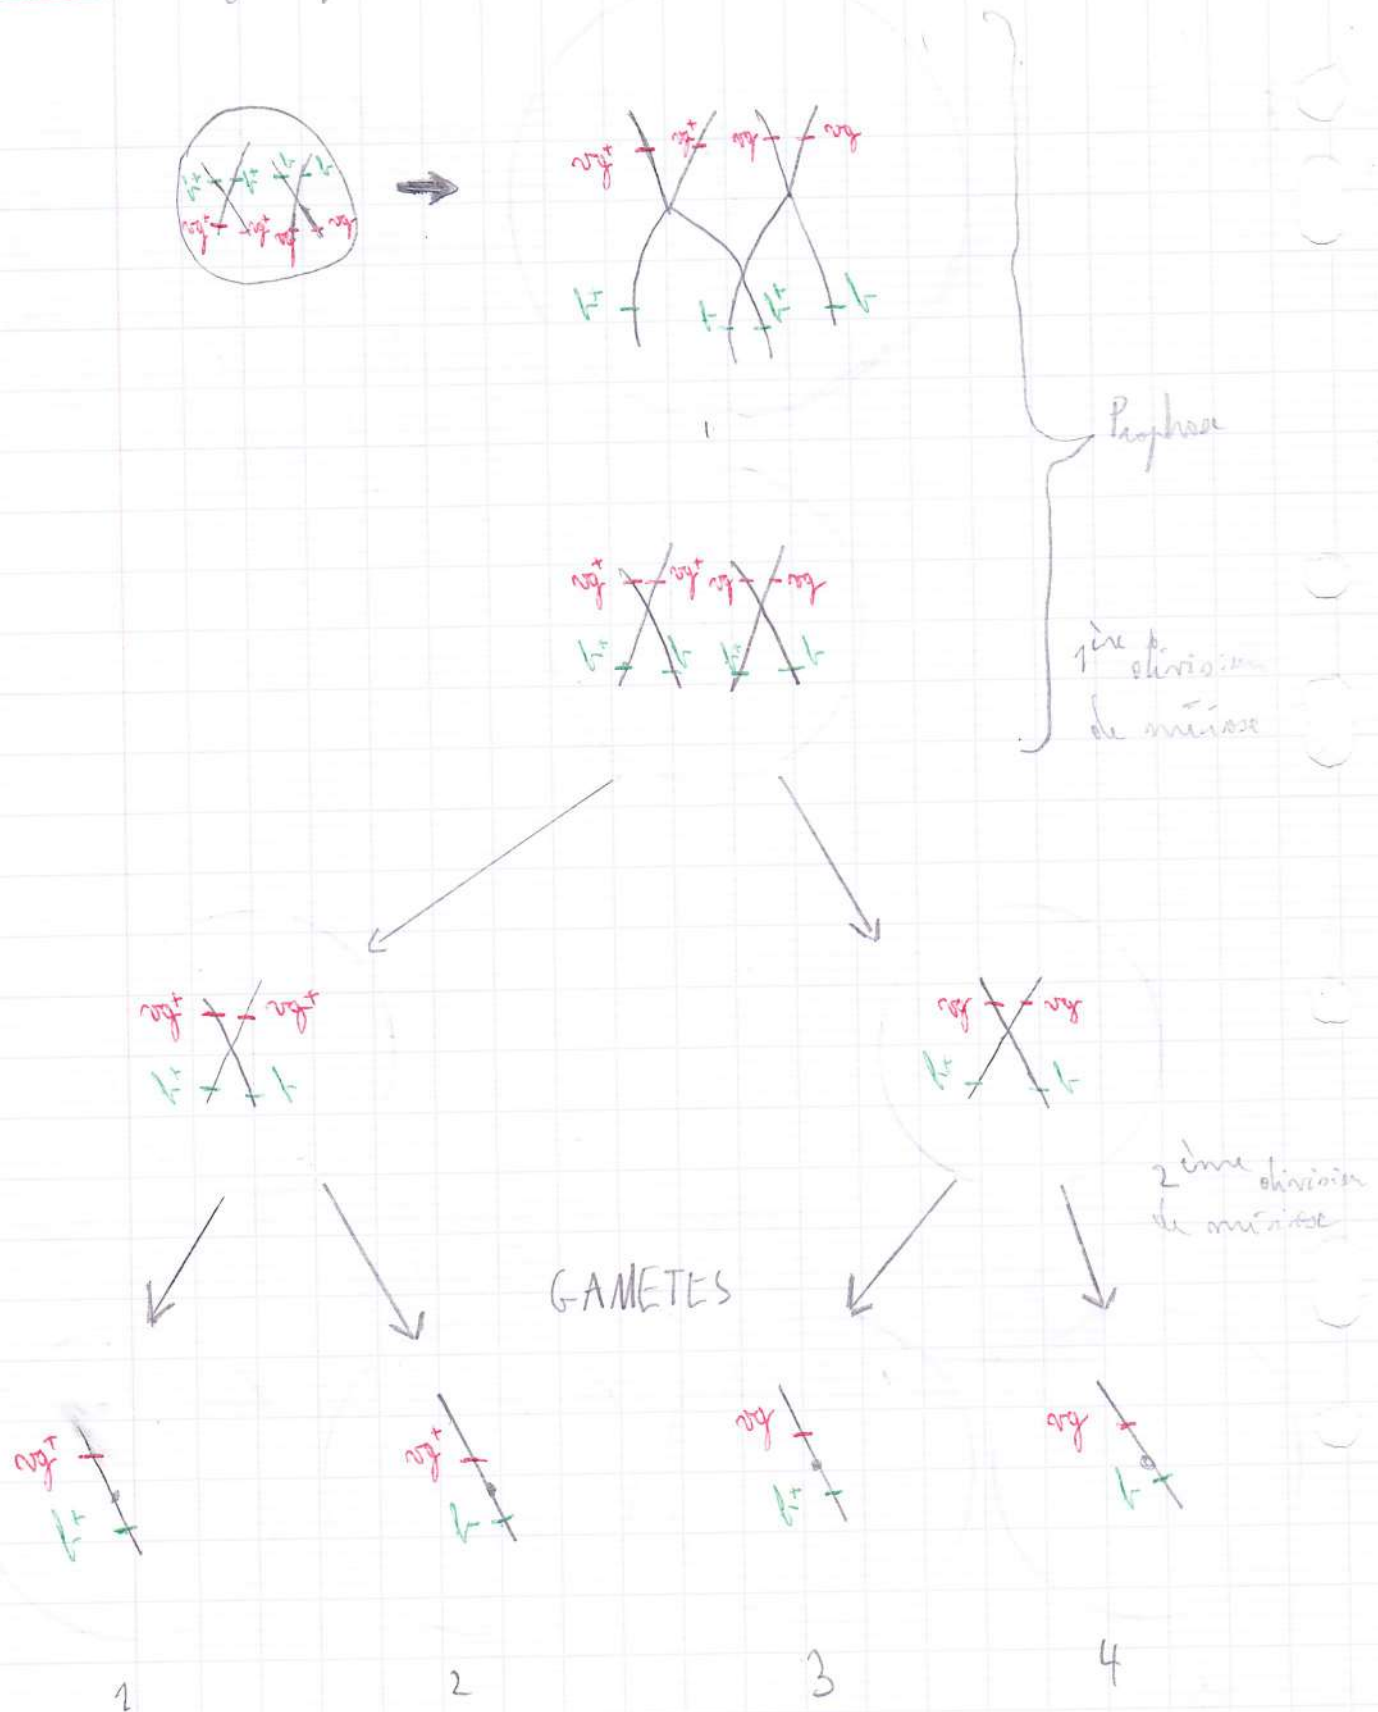 b+ b+ b b
vg+ vg+ vg vg
vg+ vg+ vg vg
b+ b b+ b
Prophase
vg+ vg+ vg vg
b+ b b+ b
1ère division
de méiose
vg+ vg+ vg vg
b+ b b+ b
2ème division
de méiose
GAMETES
vg+ vg+ vg vg
b+ b b+ b
1 2 3 4